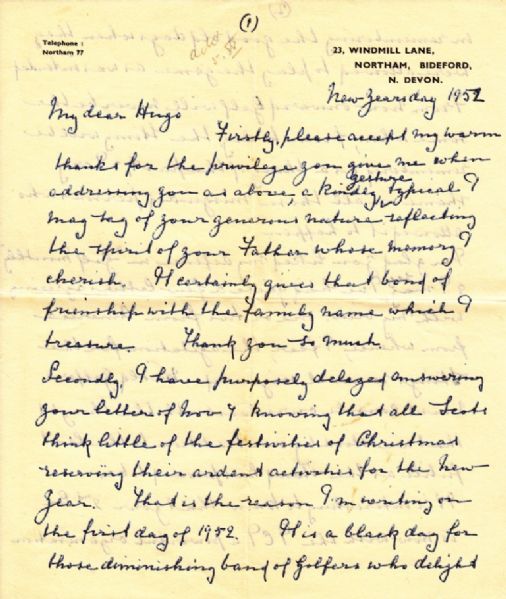 (1)
Telephone :
Northam 77
23, WINDMILL LANE,
NORTHAM, BIDEFORD,
N. DEVON.
New Years day 1952
My dear Hugo
Firstly, please accept my warm
thanks for the privilege you give me when
addressing you as above, a kindly gesture typical I
may say of your generous nature reflecting
the spirit of your Father whose memory I
cherish. It certainly gives that bond of
frienship with the Family name which I
treasure. Thank you so much.
Secondly, I have purposely delayed answering
your letter of Nov 7 knowing that all Scots
think little of the festivities of Christmas
reserving their ardent activities for the New
Year. That is the reason I'm writing on
the first day of 1952. It is a black day for
those diminishing band of Golfers who delight